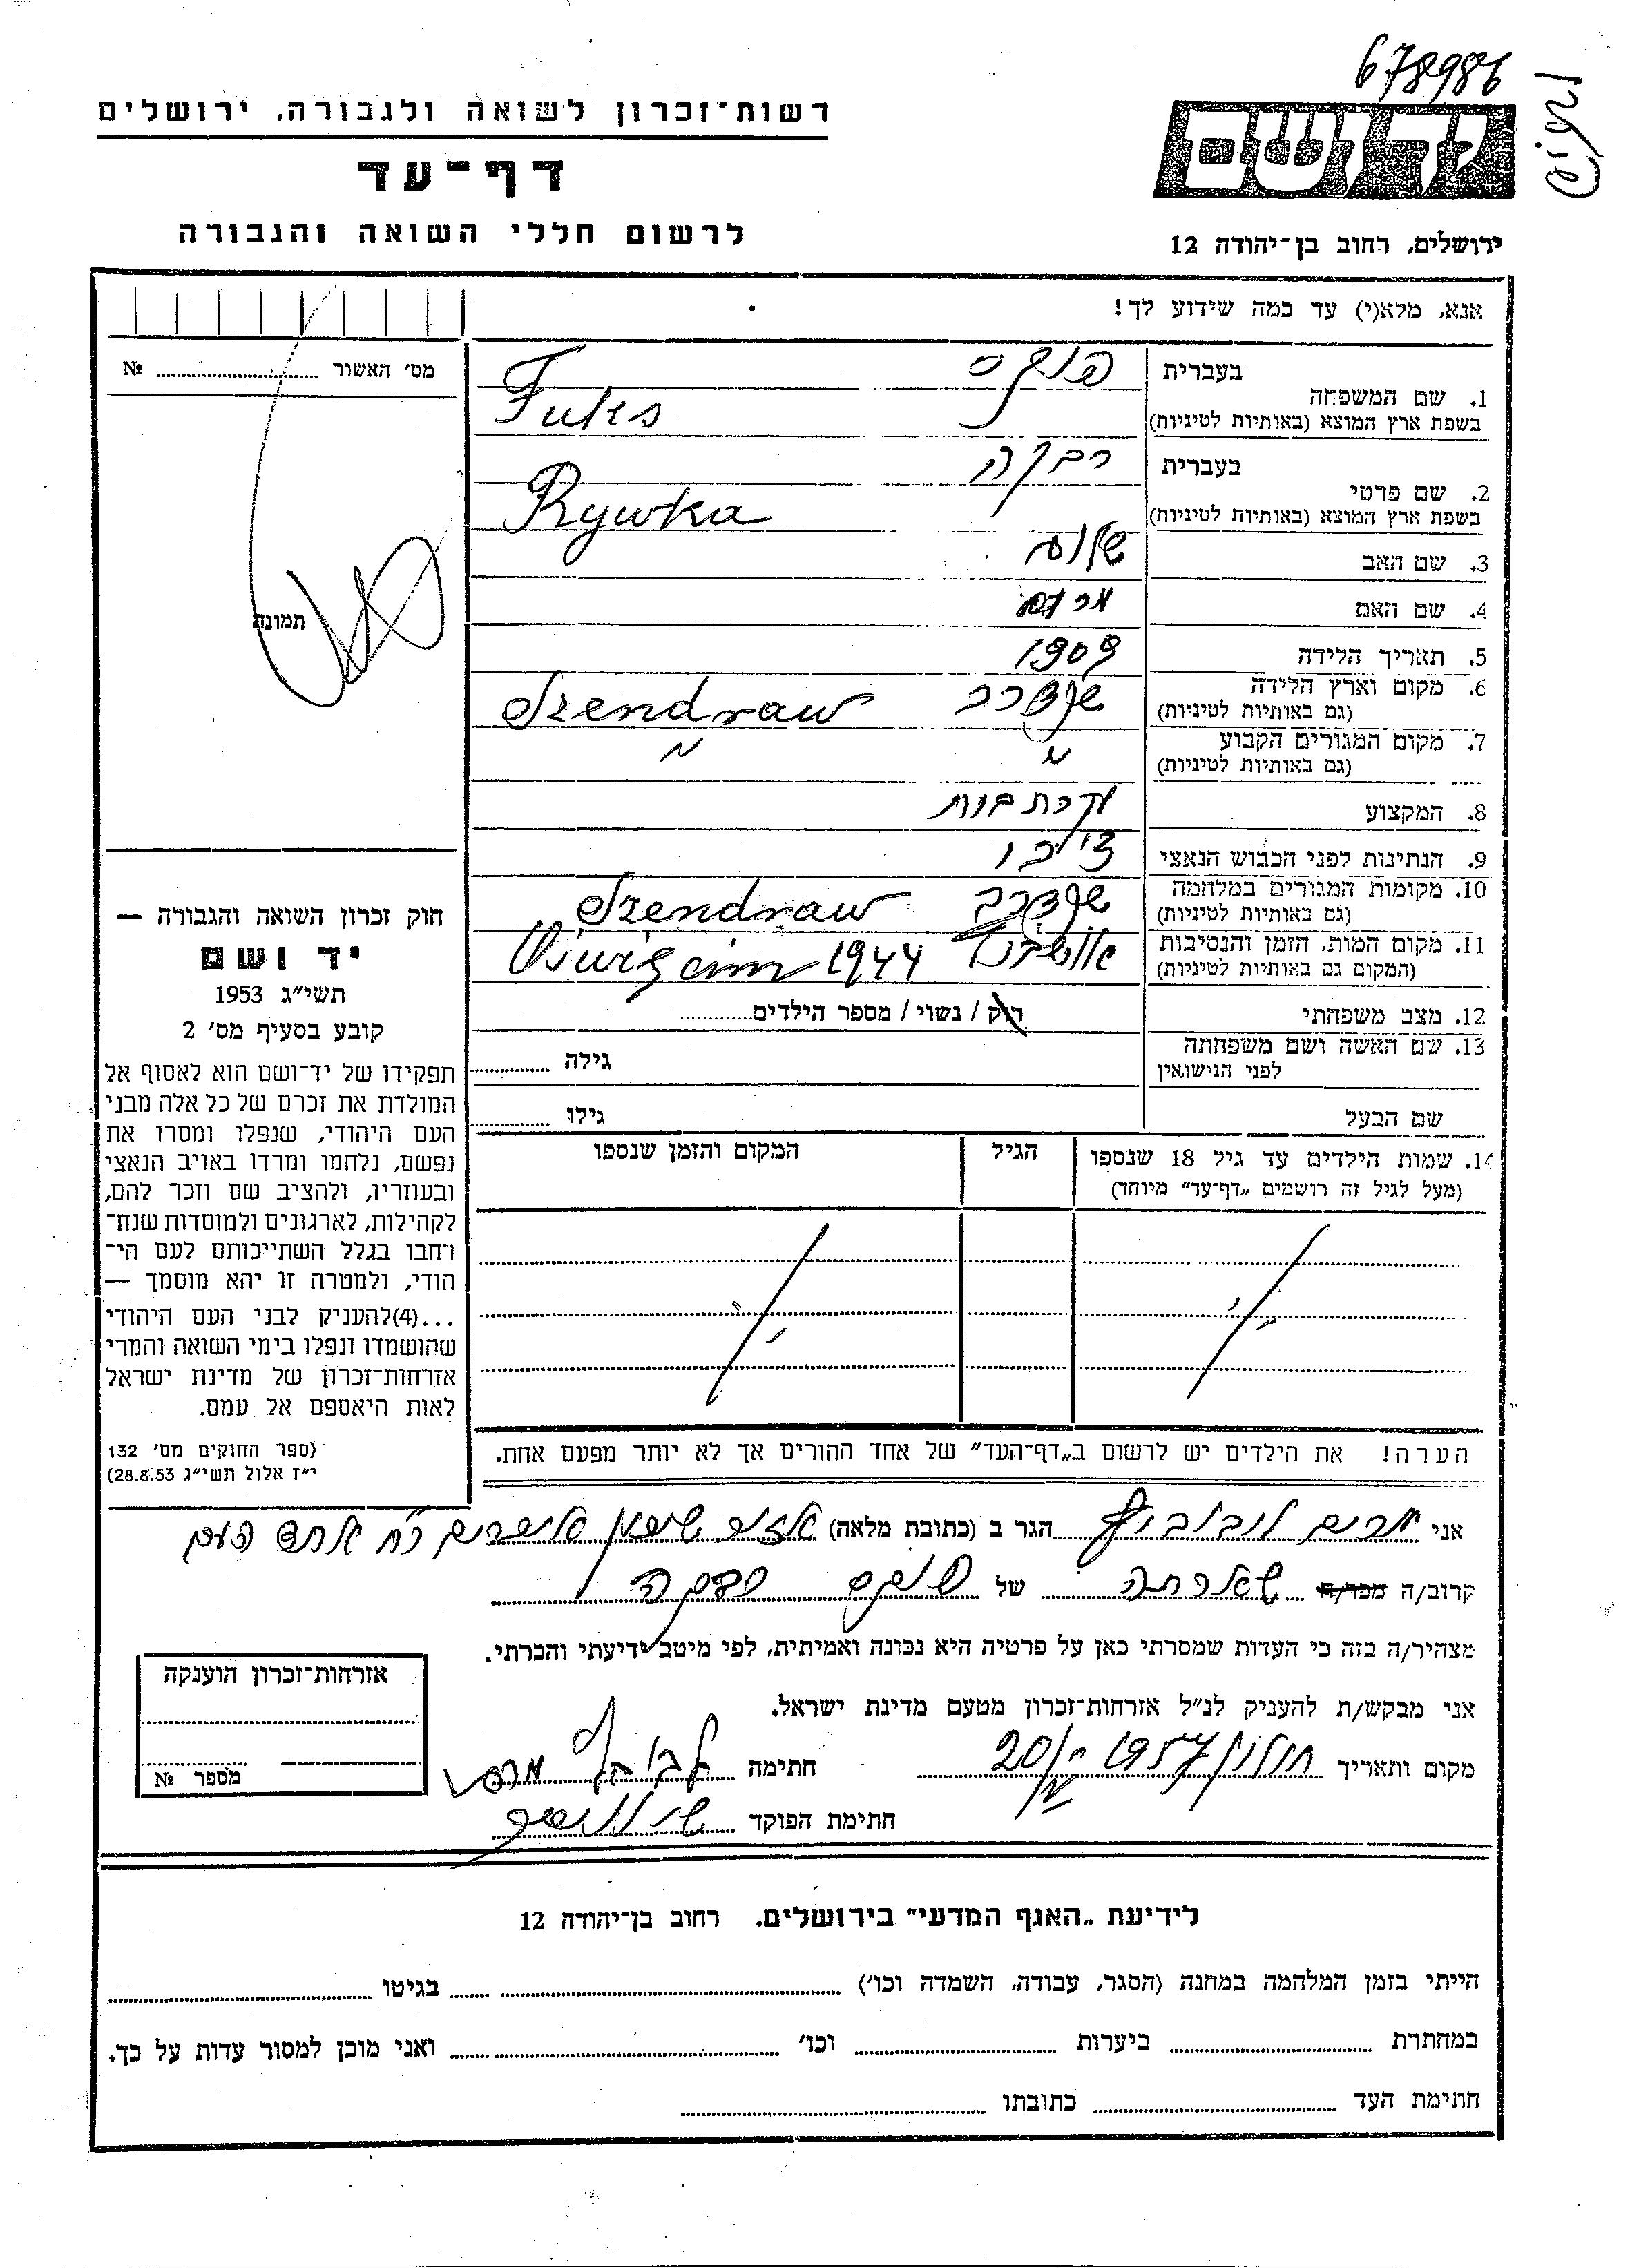 678986
רשות־זכרון לשואה ולגבורה, ירושלים
דף־עד
לרשום חללי השואה והגבורה
יד ושם
ירושלים, רחוב בן־יהודה 12
אנא, מלא(י) עד כמה שידוע לך!
מס׳ האשור ........ №
תמונה
1. שם המשפחה
בעברית פוקס
בשפת ארץ המוצא (באותיות לטיניות) Fuks
2. שם פרטי
בעברית רבקה
בשפת ארץ המוצא (באותיות לטיניות) Rywka
3. שם האב שלום
4. שם האם
5. תאריך הלידה 1909
6. מקום וארץ הלידה Szendraw
(גם באותיות לטיניות)
7. מקום המגורים הקבוע
(גם באותיות לטיניות)
8. המקצוע עקרת בית
9. הנתינות לפני הכבוש הנאצי
10. מקומות המגורים במלחמה Szendraw
(גם באותיות לטיניות)
11. מקום המות, הזמן והנסיבות 1944
(המקום גם באותיות לטיניות)
12. מצב משפחתי רוק / נשוי / מספר הילדים ........
13. שם האשה ושם משפחתה
לפני הנישואין גילה ........
שם הבעל גילו ........
14. שמות הילדים עד גיל 18 שנספו הגיל המקום והזמן שנספו
(מעל לגיל זה רושמים „דף־עד״ מיוחד)
הערה! את הילדים יש לרשום ב„דף־העד״ של אחד ההורים אך לא יותר מפעם אחת.
חוק זכרון השואה והגבורה —
יד ושם
תשי״ג 1953
קובע בסעיף מס׳ 2
תפקידו של יד־ושם הוא לאסוף אל
המולדת את זכרם של כל אלה מבני
העם היהודי, שנפלו ומסרו את
נפשם, נלחמו ומרדו באויב הנאצי
ובעוזריו, ולהציב שם וזכר להם,
לקהילות, לארגונים ולמוסדות שנח־
רחבו בגלל השתייכותם לעם הי־
הודי, ולמטרה זו יהא מוסמך —
...(4)להעניק לבני העם היהודי
שהושמדו ונפלו בימי השואה והמרי
אזרחות־זכרון של מדינת ישראל
לאות היאספם אל עמם.
(ספר החוקים מס׳ 132
י״ז אלול תשי״ג 28.8.53)
אני מרים ליבוביץ הגר ב (כתובת מלאה)
קרוב/ה מכר/ה של פוקס רבקה
מצהיר/ה בזה כי העדות שמסרתי כאן על פרטיה היא נכונה ואמיתית, לפי מיטב ידיעתי והכרתי.
אני מבקש/ת להעניק לנ״ל אזרחות־זכרון מטעם מדינת ישראל.
מקום ותאריך חולון 1957 חתימה
חתימת הפוקד
אזרחות־זכרון הוענקה
מספר №
לידיעת „האגף המדעי״ בירושלים. רחוב בן־יהודה 12
הייתי בזמן המלחמה במחנה (הסגר, עבודה, השמדה וכו׳) ........ בגיטו ........
במחתרת ........ ביערות ........ וכו׳ ........ ואני מוכן למסור עדות על כך.
חתימת העד ........ כתובתו ........